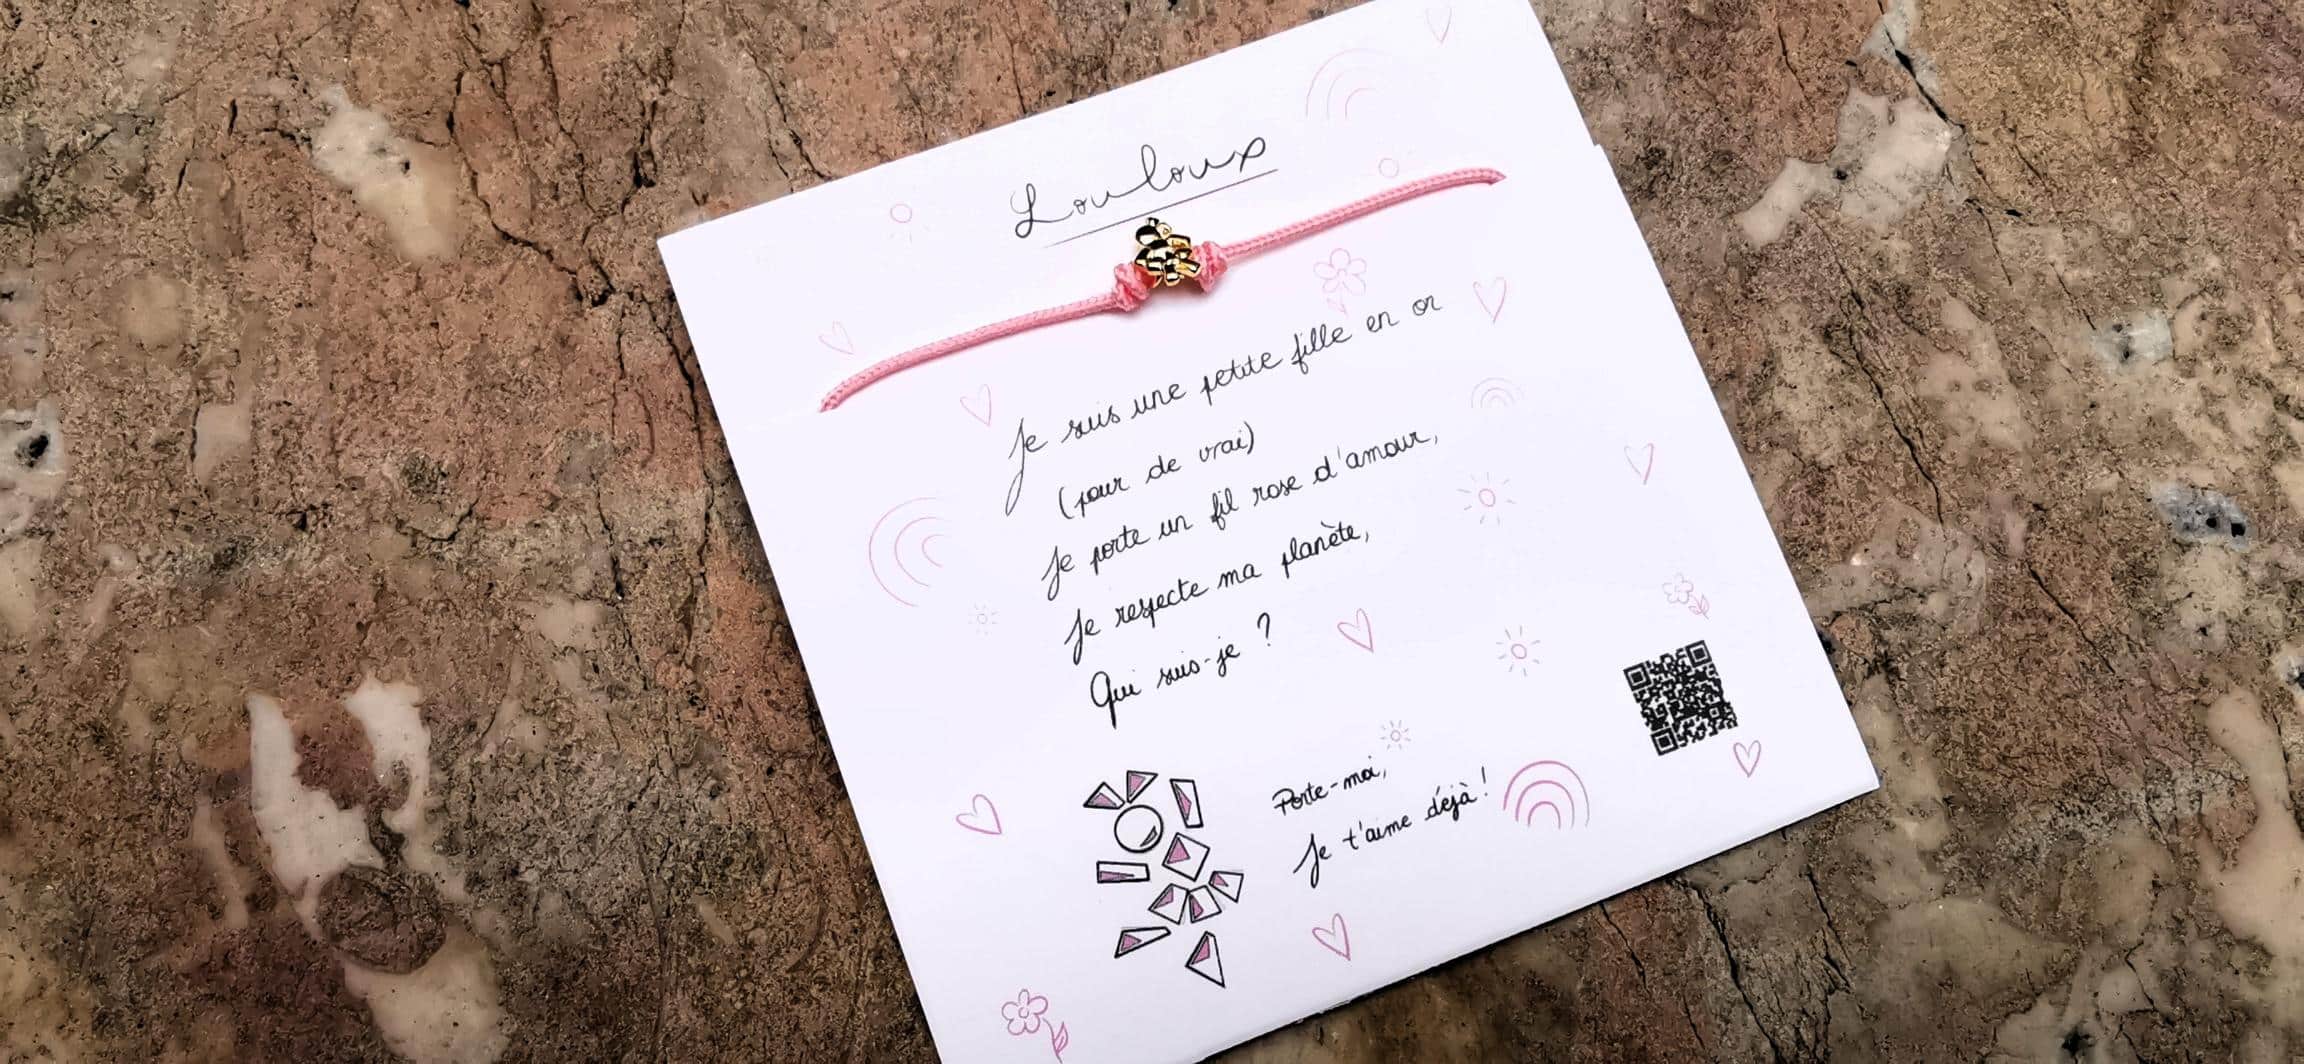 Louloux
Je suis une petite fille en or
(pour de vrai)
Je porte un fil rose d'amour,
Je respecte ma planète,
Qui suis-je ?
Porte-moi,
Je t'aime déjà !